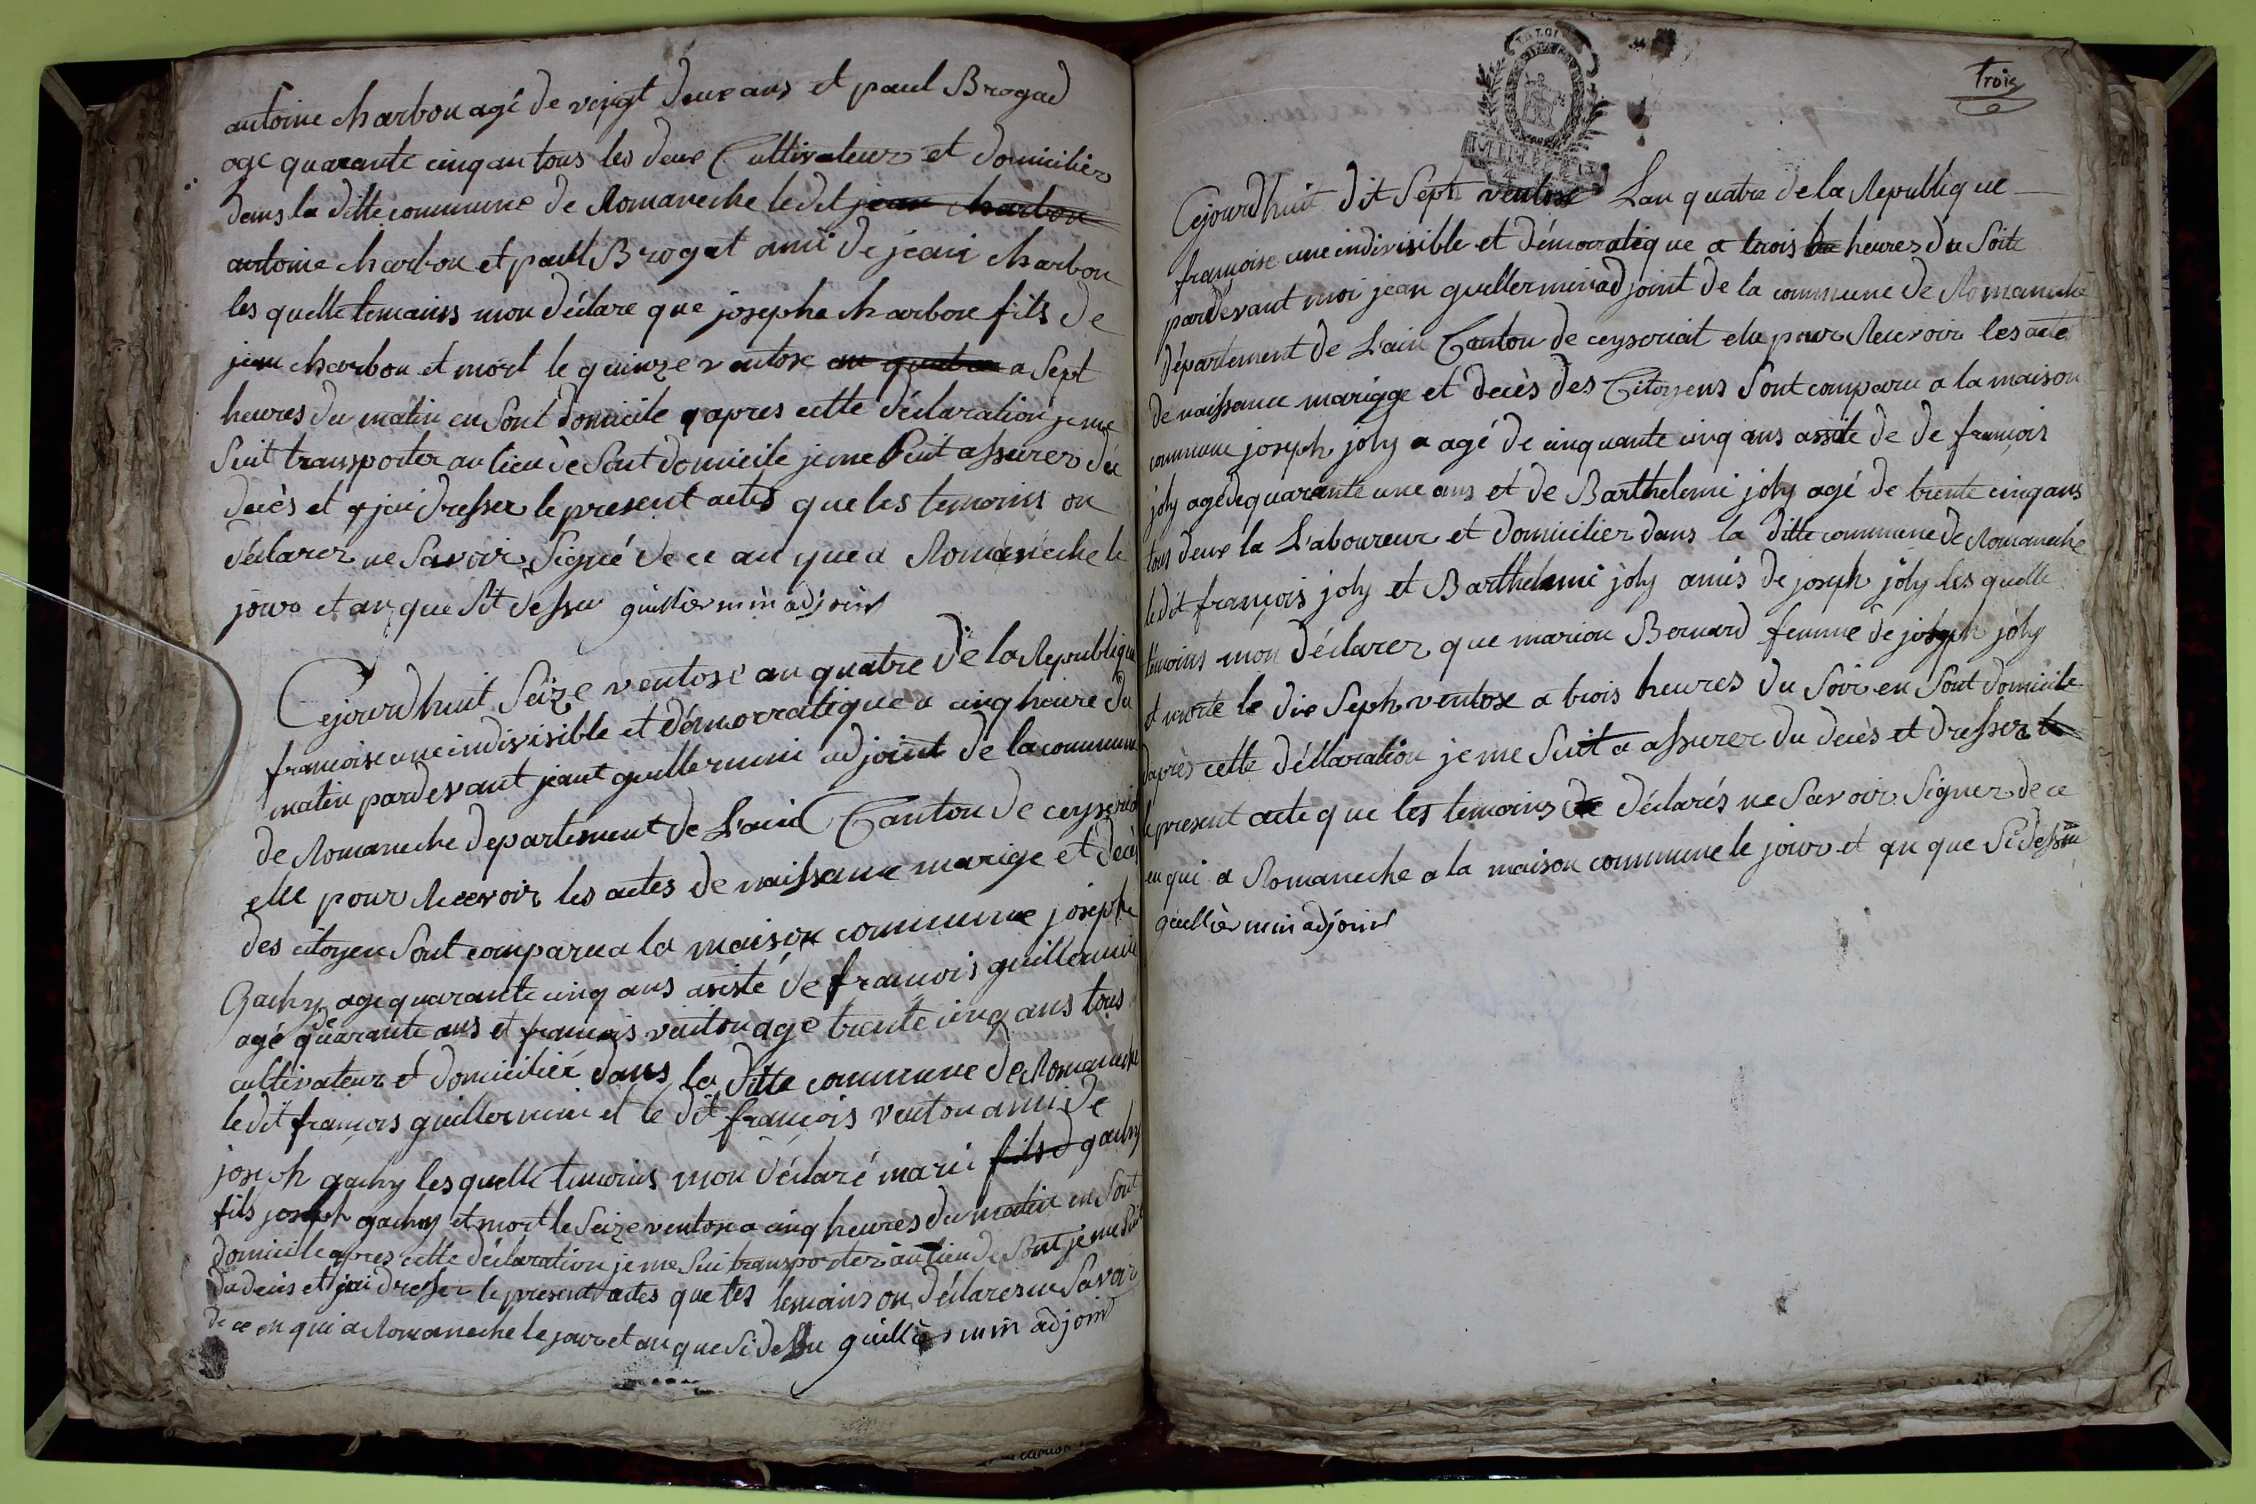 antoine charbon agé de vingt deux ans et paul Brogad
age quarante cinq an tous les deux Cultivateur et domicilier
dans la ditte commune de Romaneche ledit jean charbon
antoine charbon et paul Brogat amii de jean charbon
les quelle temains mon déclare que josephe charbon fils de
jean charbon et mort le quinze ventose an quatre a Sept
heures du matin en Sont domicile apres cette déclaration je me
Suit transporter au lieu de Sont domicile je me Suit assurer du
deces et jai dresser le present actes que les temoins on
déclarer ne Savoir Signé de ce an que a Romaneche le
jour et an que Sit dessu guilliermin adjoint
Cejourdhuit Seize ventose an quatre de la Republique
francoise une indivisible et démocratique a cinq heure du
matin pardevant jeant guillermin adjoint de la commune
de Romaneche departement de L'ain Canton de ceyseria
elue pour Recevoir les actes de naissance marige et décès
des citoyen Sont comparu a la maison commune josephe
Gachy age quarante cinq ans asisté de francois guillermin
agé de quarante ans et francois venton age trente cinq ans tous
cultivateur et domicilié dans la ditte commune de Romaneche
ledit francois guillermin et le dit françois venton ami de
joseph gachy les quelle temoins mon déclaré marie fils d gachy
fils joseph gachy et mort le Seize ventose a cinq heures du matin en Sont
domicile apres cette déclaration je me Sui transporter au lieu de Sont je me Suit
du décès et jai dresser le present actes que les temoins on déclarer ne Savoir
de ce en qui a Romaneche le jour et an que Si dessu guilliermin adjoint
Trois
Cejourdhuit dit Sept ventose Lan quatre de la Republique
françoise une indivisible et démocratique a trois heures du Soite
pardevant moi jean guillermin adjoint de la commune de Romaneche
département de L'ain Canton de ceyseriat elu pour Recevoir les acte
de naissance mariage et decès des Citoyens Sont comparu a la maison
commune joseph joly a agé de cinquante cinq ans assite de de françois
joly agé de quarante une ans et de Barthelemi joly agé de trente cinq ans
tous deux la L'aboureur et domicilier dans la ditte commune de Romaneche
le dit françois joly et Barthelemi joly amis de joseph joly les quelle
témoins mon déclarer que marion Bernard femme de joseph joly
et morte le dix Seph ventose a trois heures du Soir en Sont domicile
daprès cette déclaration je me Suit a assurer du decès et dresser le
le present acte que les temoins de déclarés ne Savoir Signer de ce
en qui a Romaneche a la maison commune le jour et an que Si dessu
guilliermin adjoint